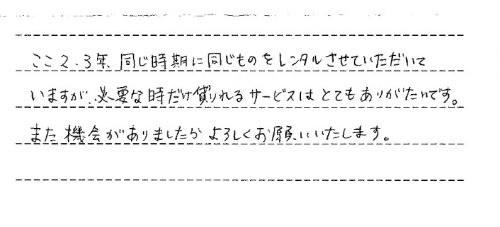 ここ2.3年、同じ時期に同じものをレンタルさせていただいて
いますが、必要な時だけ借りれるサービスはとてもありがたいです。
また機会がありましたらよろしくお願いいたします。